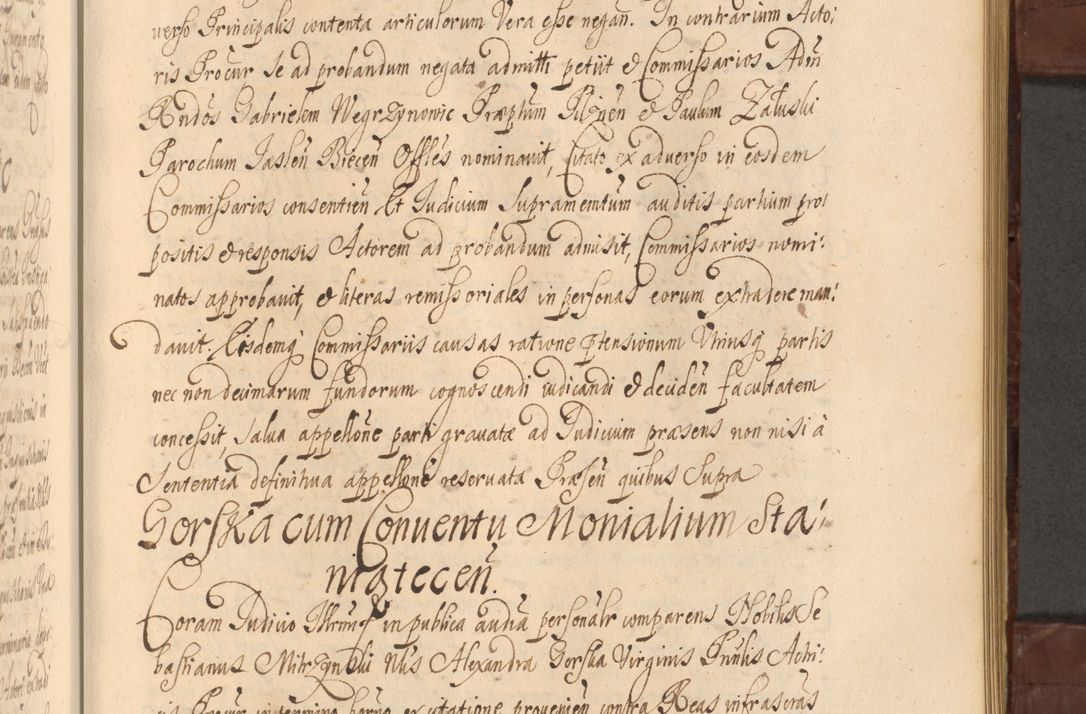 verso Principalis contenta articulorum Vera esse negañ. In contrarium Acto:
ris Procur se ad probandum negata admitti petiit & Commissarios Adm
Rndos Gabrielem Wegrzynowic Præptum Pilznen & Paulum Załuski
Parochum Jaslen Biecen Offles nominavit, Citato ex adverso in eosdem
Commissarios consentien Et Judicium Supramemtum auditis partium pro:
positis & responsis Actorem ad probandum admisit, Commissarios nomi:
natos approbavit, & literas remissoriales in personas eorum extradere man:
davit. Eisdemq Commissariis causas ratione ptensionum Utriusq partis
nec non decimarum fundorum cognoscendi iudicandi & deciden facultatem
concessit, Salva appellone parti gravatæ ad Judicium præsens non nisi à
Sententia definitiva appellone reservata Præsen quibus Supra
Gorska cum Conventu Monialium Sta:
niątecen.
Coram Judicio Illrmi in publica audia personalr comparens Nobilis Se
bastianus Mitrzynski Nlis Alexandra Gorska Virginis Prinlis Actri:
cis Procur in termino horno ex citatione provenien contra Reas infrascras